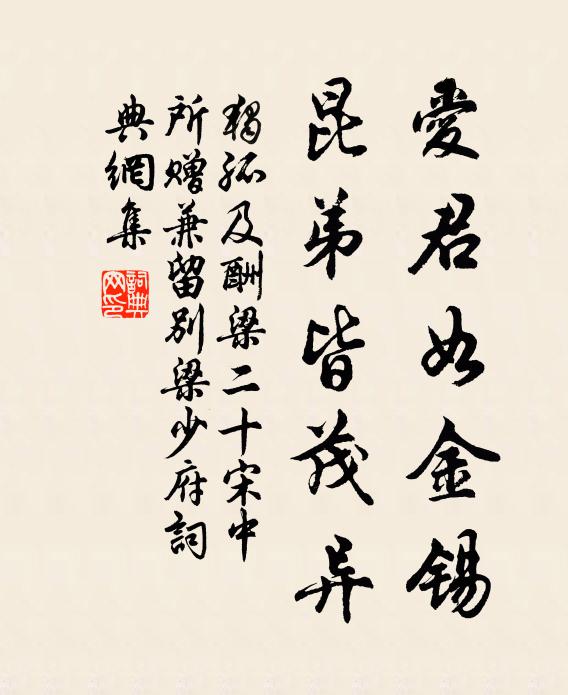 愛君如金錫
昆弟皆茂异
獨孤及酬梁二十宋中
所贈兼留別梁少府詞
典網集
詞典
网印